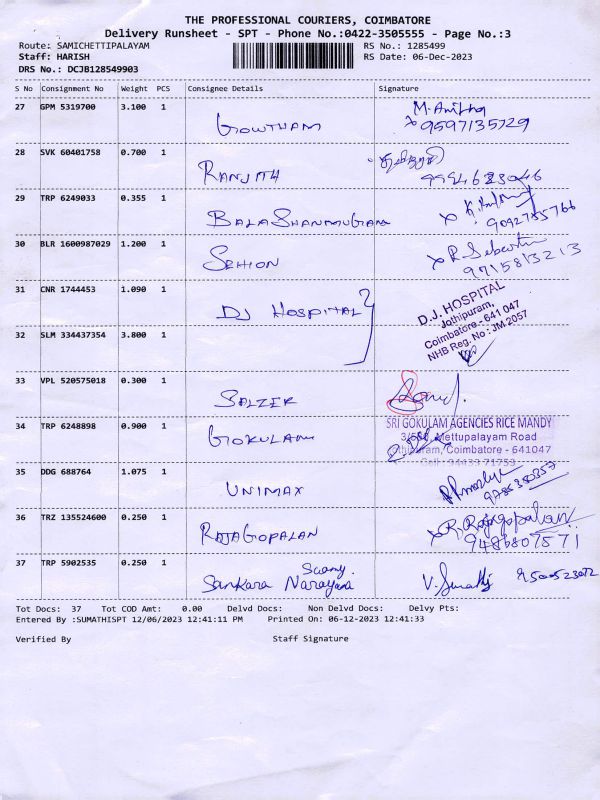 THE PROFESSIONAL COURIERS, COIMBATORE
Delivery Runsheet - SPT - Phone No.:0422-3505555 - Page No.:3
Route: SAMICHETTIPALAYAM RS No.: 1285499
Staff: HARISH RS Date: 06-Dec-2023
DRS No.: DCJB128549903
S No Consignment No Weight PCS Consignee Details Signature
27 GPM 5319700 3.100 1 GOWTHAM M. Anitha 9597135729
28 SVK 60401758 0.700 1 RANJITH
29 TRP 6249033 0.355 1 BALASHANMUGAM 9092785766
30 BLR 1600987029 1.200 1 SEHION R. Sebastin 9715813213
31 CNR 1744453 1.090 1 DJ HOSPITAL
D.J. HOSPITAL
Jothipuram,
Coimbatore - 641 047
NHB Reg. No : JM 2057
32 SLM 334437354 3.800 1
33 VPL 520575018 0.300 1 SALZER
34 TRP 6248898 0.900 1 GOKULAM
SRI GOKULAM AGENCIES RICE MANDY
Mettupalayam Road
Coimbatore - 641047
Cell : 94439 71759
35 DDG 688764 1.075 1 UNIMAX
36 TRZ 135524600 0.250 1 RAJAGOPALAN R. Rajagopalan 9486807571
37 TRP 5902535 0.250 1 Sankara Narayana Swamy. V. Sumathi
Tot Docs: 37 Tot COD Amt: 0.00 Delvd Docs: Non Delvd Docs: Delvy Pts:
Entered By :SUMATHISPT 12/06/2023 12:41:11 PM Printed On: 06-12-2023 12:41:33
Verified By Staff Signature